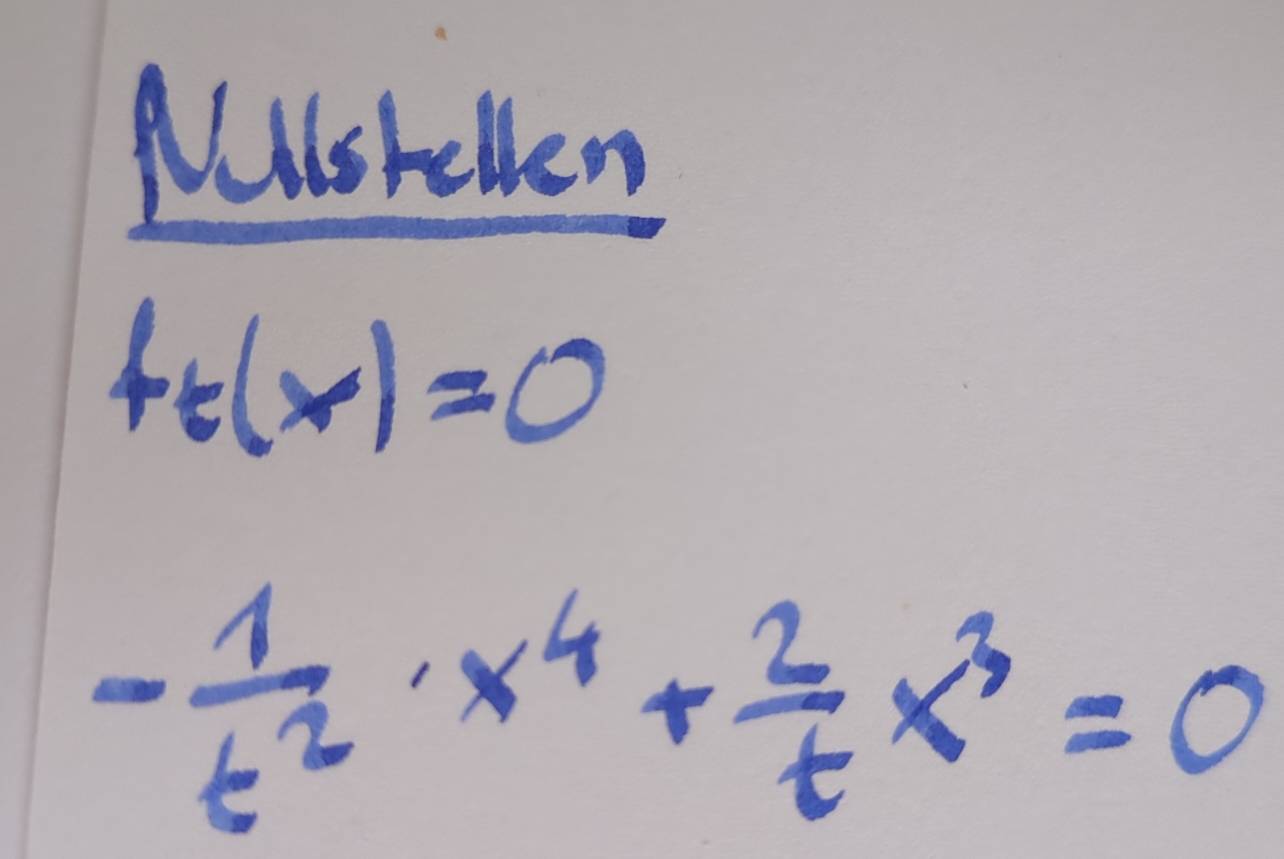 Nullstellen
fₜ(x)=0
-1/t² · x⁴ + 2/t x³ = 0